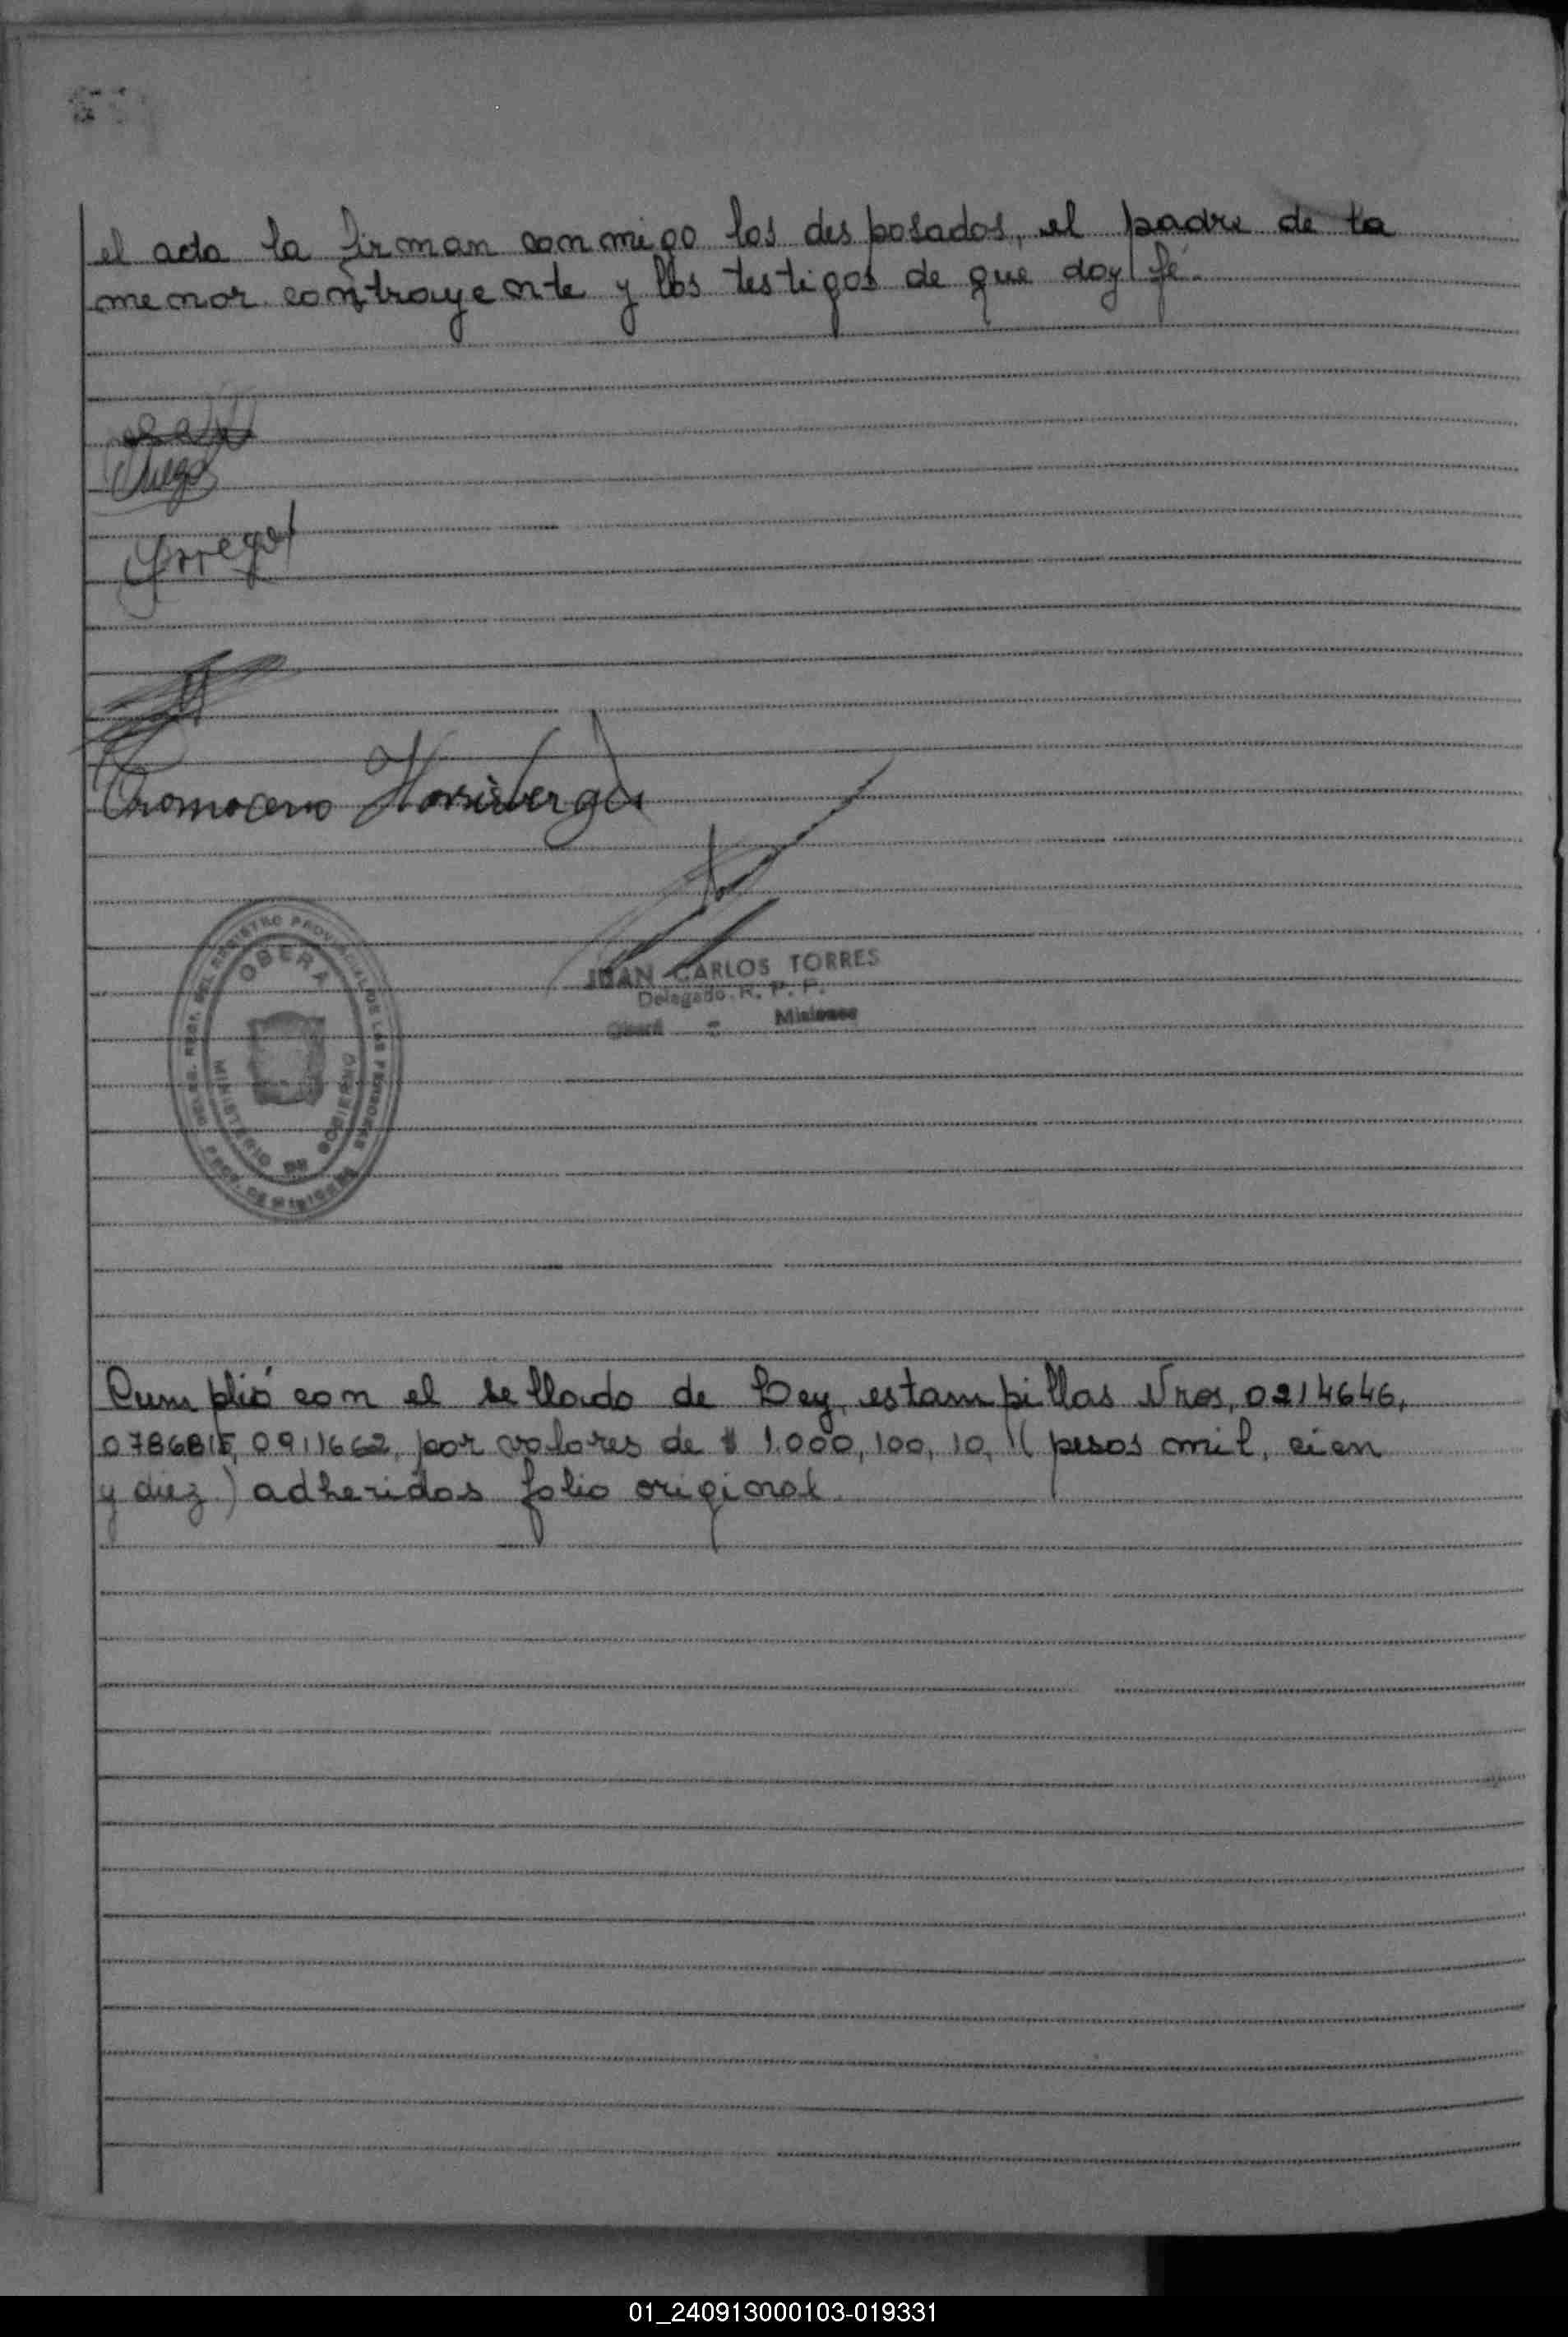 el acta la firman conmigo los desposados, el padre de la
menor contrayente y los testigos de que doy fé.
Yrregox
Cromacero
JUAN CARLOS TORRES
Delegado R. P. P.
Oberá - Misiones
DEL REGISTRO PROVINCIAL DE LAS PERSONAS
OBERA
MINISTERIO DE GOBIERNO
PROV. DE MISIONES
Cumplió con el sellado de Ley, estampillas Nros, 0214646,
0786815, 0911662, por valores de $ 1.000, 100, 10, (pesos mil, cien
y diez) adheridas folio original.
01_240913000103-019331